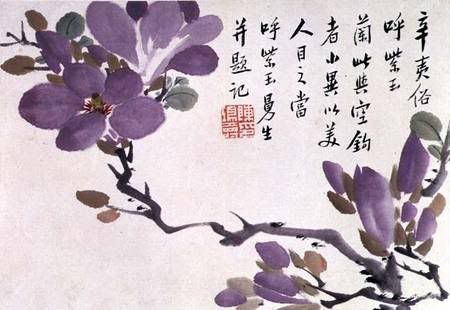 辛夷俗
呼紫玉
蘭此與空鈎
者小異以美
人目之當
呼紫玉曼生
并題記